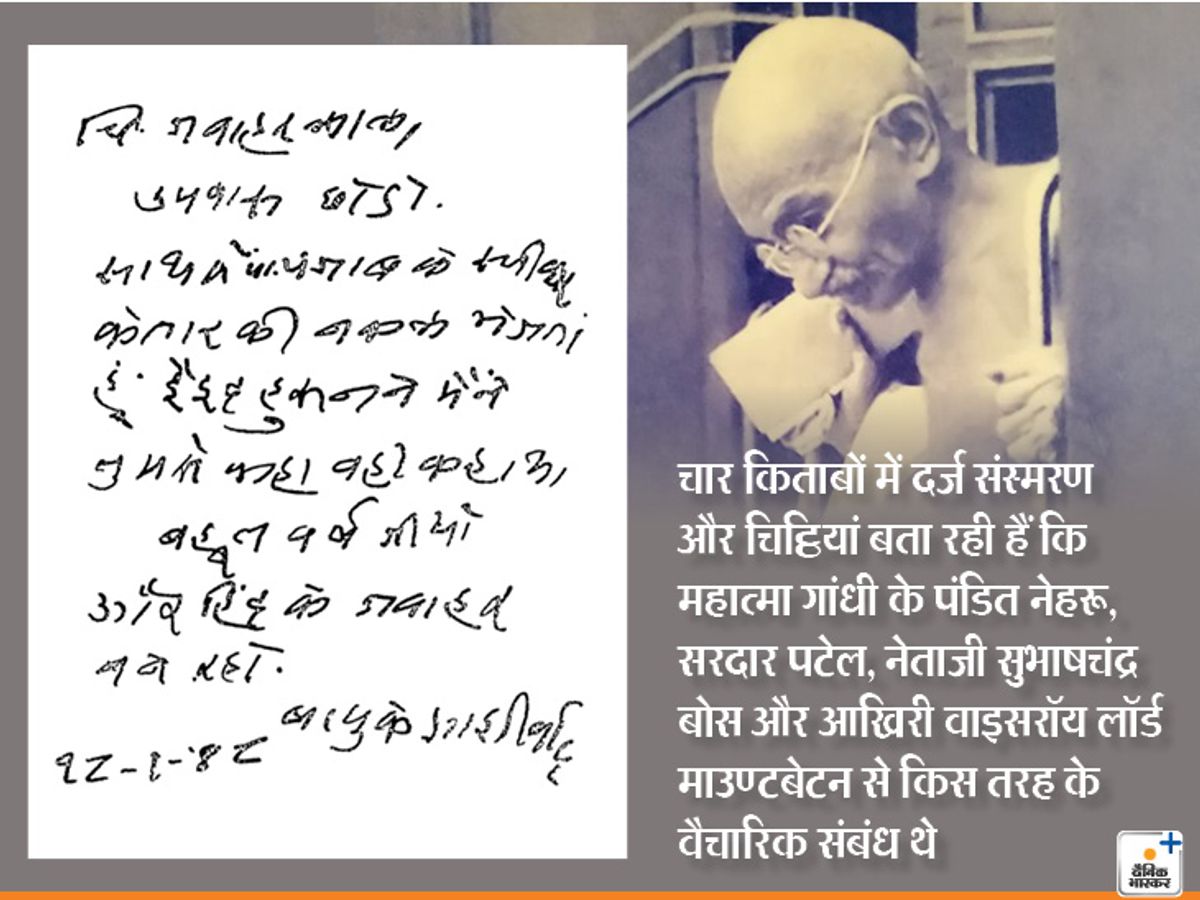 चि. जवाहरलाल,
उपवास छोडो.
साथ में प. पंजाब के स्पीकर
के तार की नकल भेजता
हूं. मैंने
तुमसे कहा वही कहा था,
बहुत वर्ष जीयो
और हिंद के जवाहर
बने रहो.
बापु के आशीर्वाद
१८-१-४८
चार किताबों में दर्ज संस्मरण
और चिट्ठियां बता रही हैं कि
महात्मा गांधी के पंडित नेहरू,
सरदार पटेल, नेताजी सुभाषचंद्र
बोस और आखिरी वाइसरॉय लॉर्ड
माउण्टबेटन से किस तरह के
वैचारिक संबंध थे
दैनिक
भास्कर